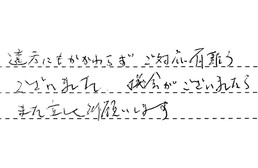 遠方にもかかわらず ご対応有難う
ございました 機会がございましたら
また宜しく御願いします